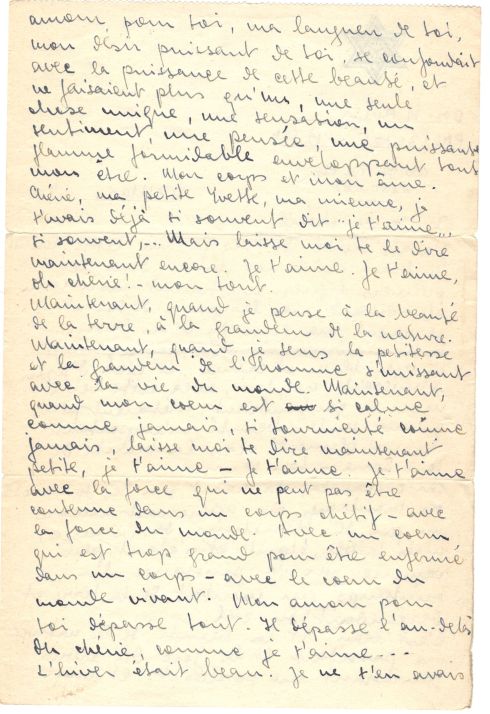 amour pour toi, ma langueur de toi,
mon désir puissant de toi, se confondait
avec la puissance de cette beauté, et
ne faisaient plus qu'un, une seule
chose unique, une sensation, un
sentiment, une pensée, une puissante
flamme formidable enveloppant tout
mon être. Mon corps et mon âme.
Chérie, ma petite Yvette, ma mienne, je
t'avais déjà si souvent dit "je t'aime",
si souvent,... Mais laisse moi te le dire
maintenant encore. Je t'aime. Je t'aime,
oh chérie! - mon tout.
Maintenant, quand je pense à la beauté
de la terre, à la grandeur de la nature.
Maintenant, quand je sens la petitesse
et la grandeur de l'homme s'unissant
avec la vie du monde. Maintenant,
quand mon coeur est si calme
comme jamais, si tourmenté comme
jamais, laisse moi te dire maintenant
petite, je t'aime - Je t'aime. Je t'aime
avec la force qui ne peut pas être
contenue dans un corps chétif - avec
la force du monde. Avec un coeur
qui est trop grand pour être enfermé
dans un corps - avec le coeur du
monde vivant. Mon amour pour
toi dépasse tout. Il dépasse l'au-delà
Oh chérie, comme je t'aime...
L'hiver était beau. Je ne t'en avais